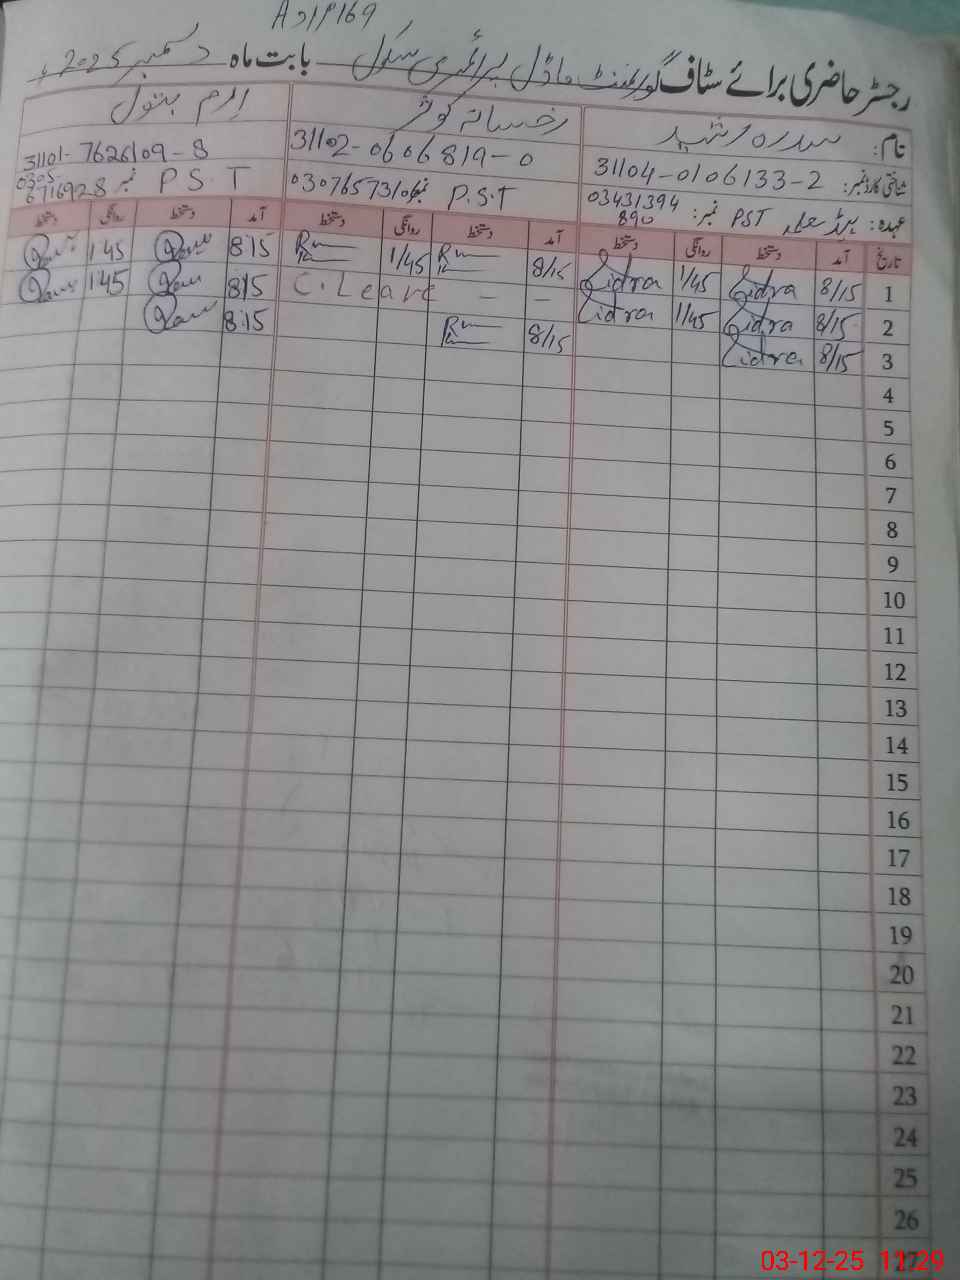 169 مراد A
رجسٹر حاضری برائے سٹاف گورنمنٹ ماڈل پرائمری سکول بابت ماہ دسمبر 2025ء
نام: سدرہ رشید
شناختی کارڈ نمبر: 31104-0106133-2
عہدہ: ہیڈ معلمہ PST نمبر: 03431394890
رخسانہ کوثر
31102-0606819-0
P.S.T نمبر 0307657310
ارم بتول
31101-7626109-8
P.S.T نمبر 0305-6716928
تاریخ آمد دستخط روانگی دستخط آمد دستخط روانگی دستخط آمد دستخط روانگی دستخط
1 8/15 Sidra 1/45 Sidra 8/15 1/45 8:15 1:45
2 8/15 Sidra 1/45 Sidra – – C.Leave 8:15 1:45
3 8/15 Sidra 8/15 8:15
4
5
6
7
8
9
10
11
12
13
14
15
16
17
18
19
20
21
22
23
24
25
26
27
03-12-25 11:29